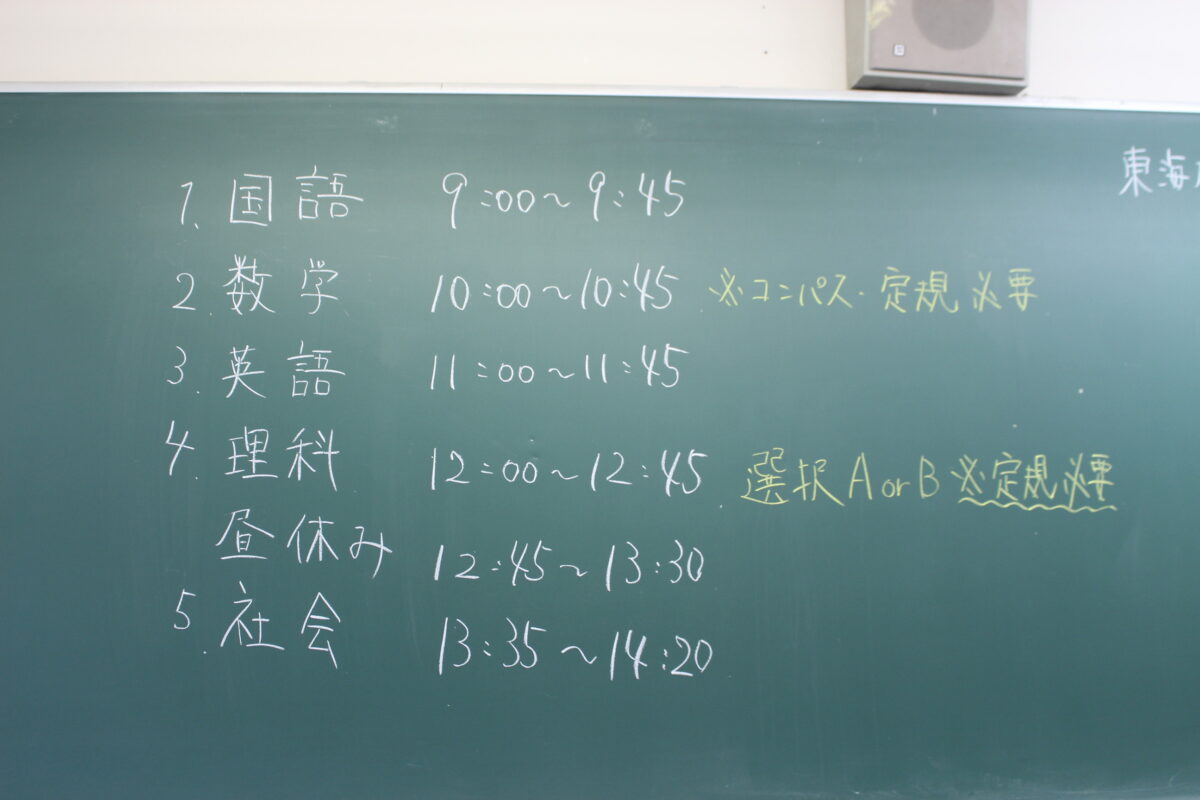 1. 国語 9:00～9:45
2. 数学 10:00～10:45 ※コンパス・定規 必要
3. 英語 11:00～11:45
4. 理科 12:00～12:45 選択 A or B ※定規必要
昼休み 12:45～13:30
5. 社会 13:35～14:20
東海